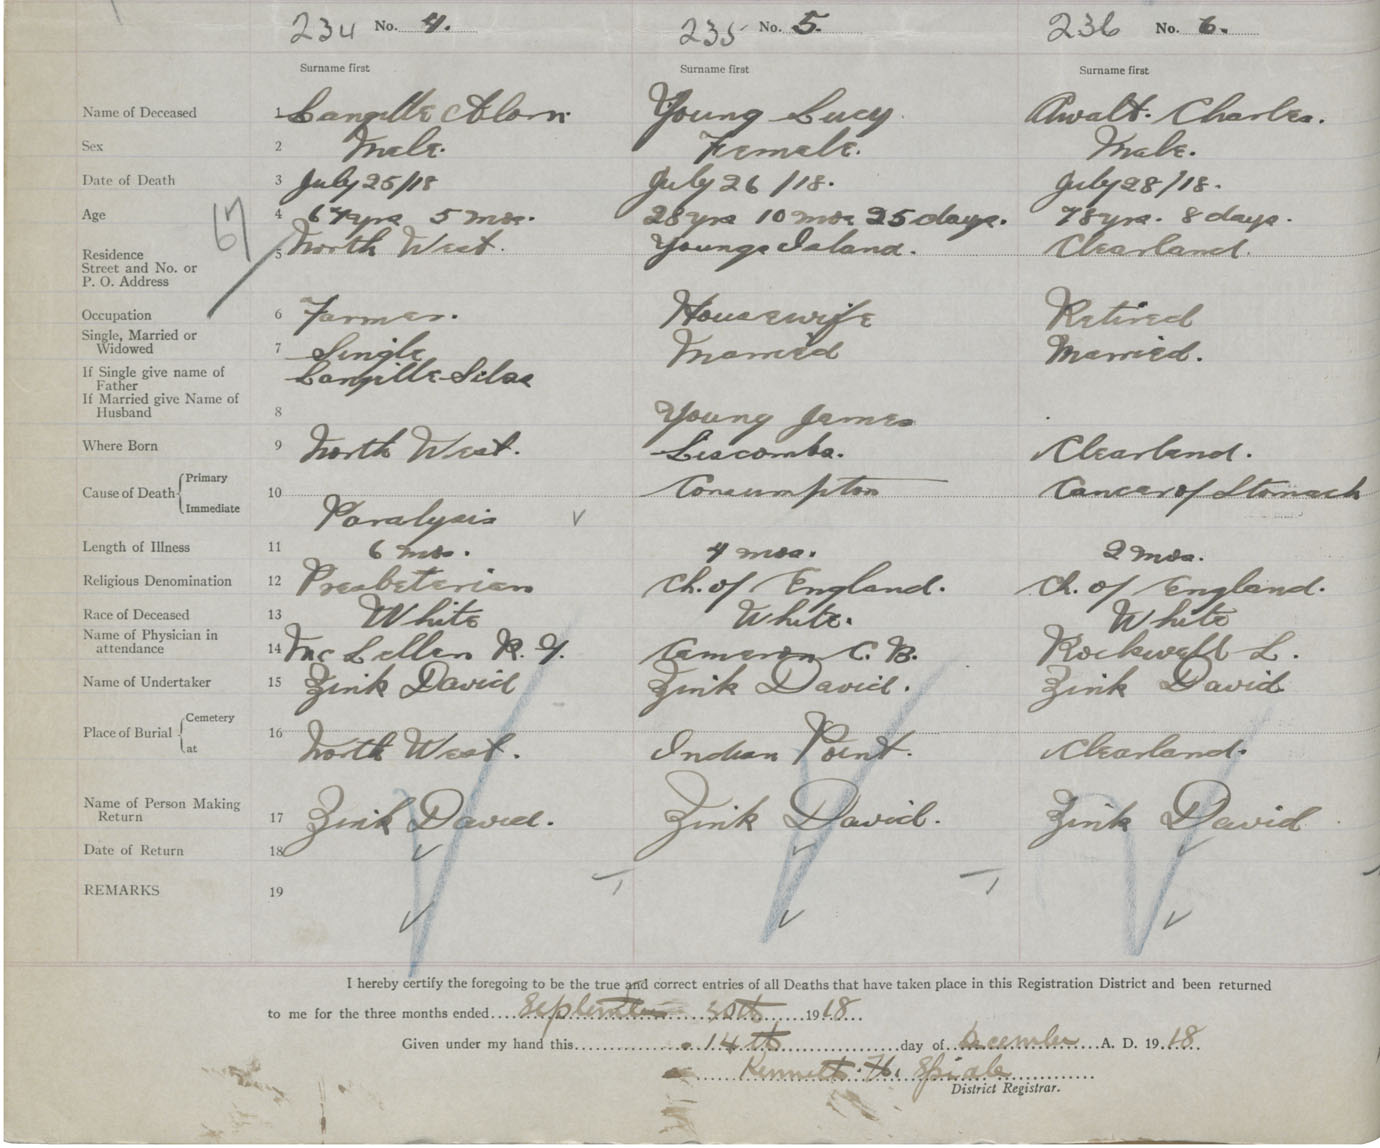 234 No. 4. 235 No. 5. 236 No. 6.
Surname first Surname first Surname first
Name of Deceased 1 Langille Alorn. Young Lucy Awalt. Charles.
Sex 2 Male. Female. Male.
Date of Death 3 July 25/18 July 26/18. July 28/18.
Age 4 67 yrs 5 mos. 28 yrs 10 mos 25 days. 78 yrs. 8 days.
67
Residence 5 North West. Youngs Island. Clearland.
Street and No. or
P. O. Address
Occupation 6 Farmer. Housewife Retired
Single, Married or
Widowed 7 Single Married Married.
If Single give name of
Father Langille Silas
If Married give Name of
Husband 8 Young James
Where Born 9 North West. Liscombs. Clearland.
Cause of Death Primary 10 Consumpton Cancer of Stomach
Immediate Paralysis
Length of Illness 11 6 mos. 4 mos. 2 mos.
Religious Denomination 12 Presbeterian Ch. of England. Ch. of England.
Race of Deceased 13 White White. White
Name of Physician in
attendance 14 McLellan R. Y. Cameron C. B. Rockwell L.
Name of Undertaker 15 Zink David Zink David. Zink David
Place of Burial Cemetery 16
at North West. Indian Point. Clearland.
Name of Person Making
Return 17 Zink David. Zink David. Zink David
Date of Return 18
REMARKS 19
I hereby certify the foregoing to be the true and correct entries of all Deaths that have taken place in this Registration District and been returned
to me for the three months ended September 30th 1918
Given under my hand this 14th day of December A. D. 1918
Kenneth H.
District Registrar.